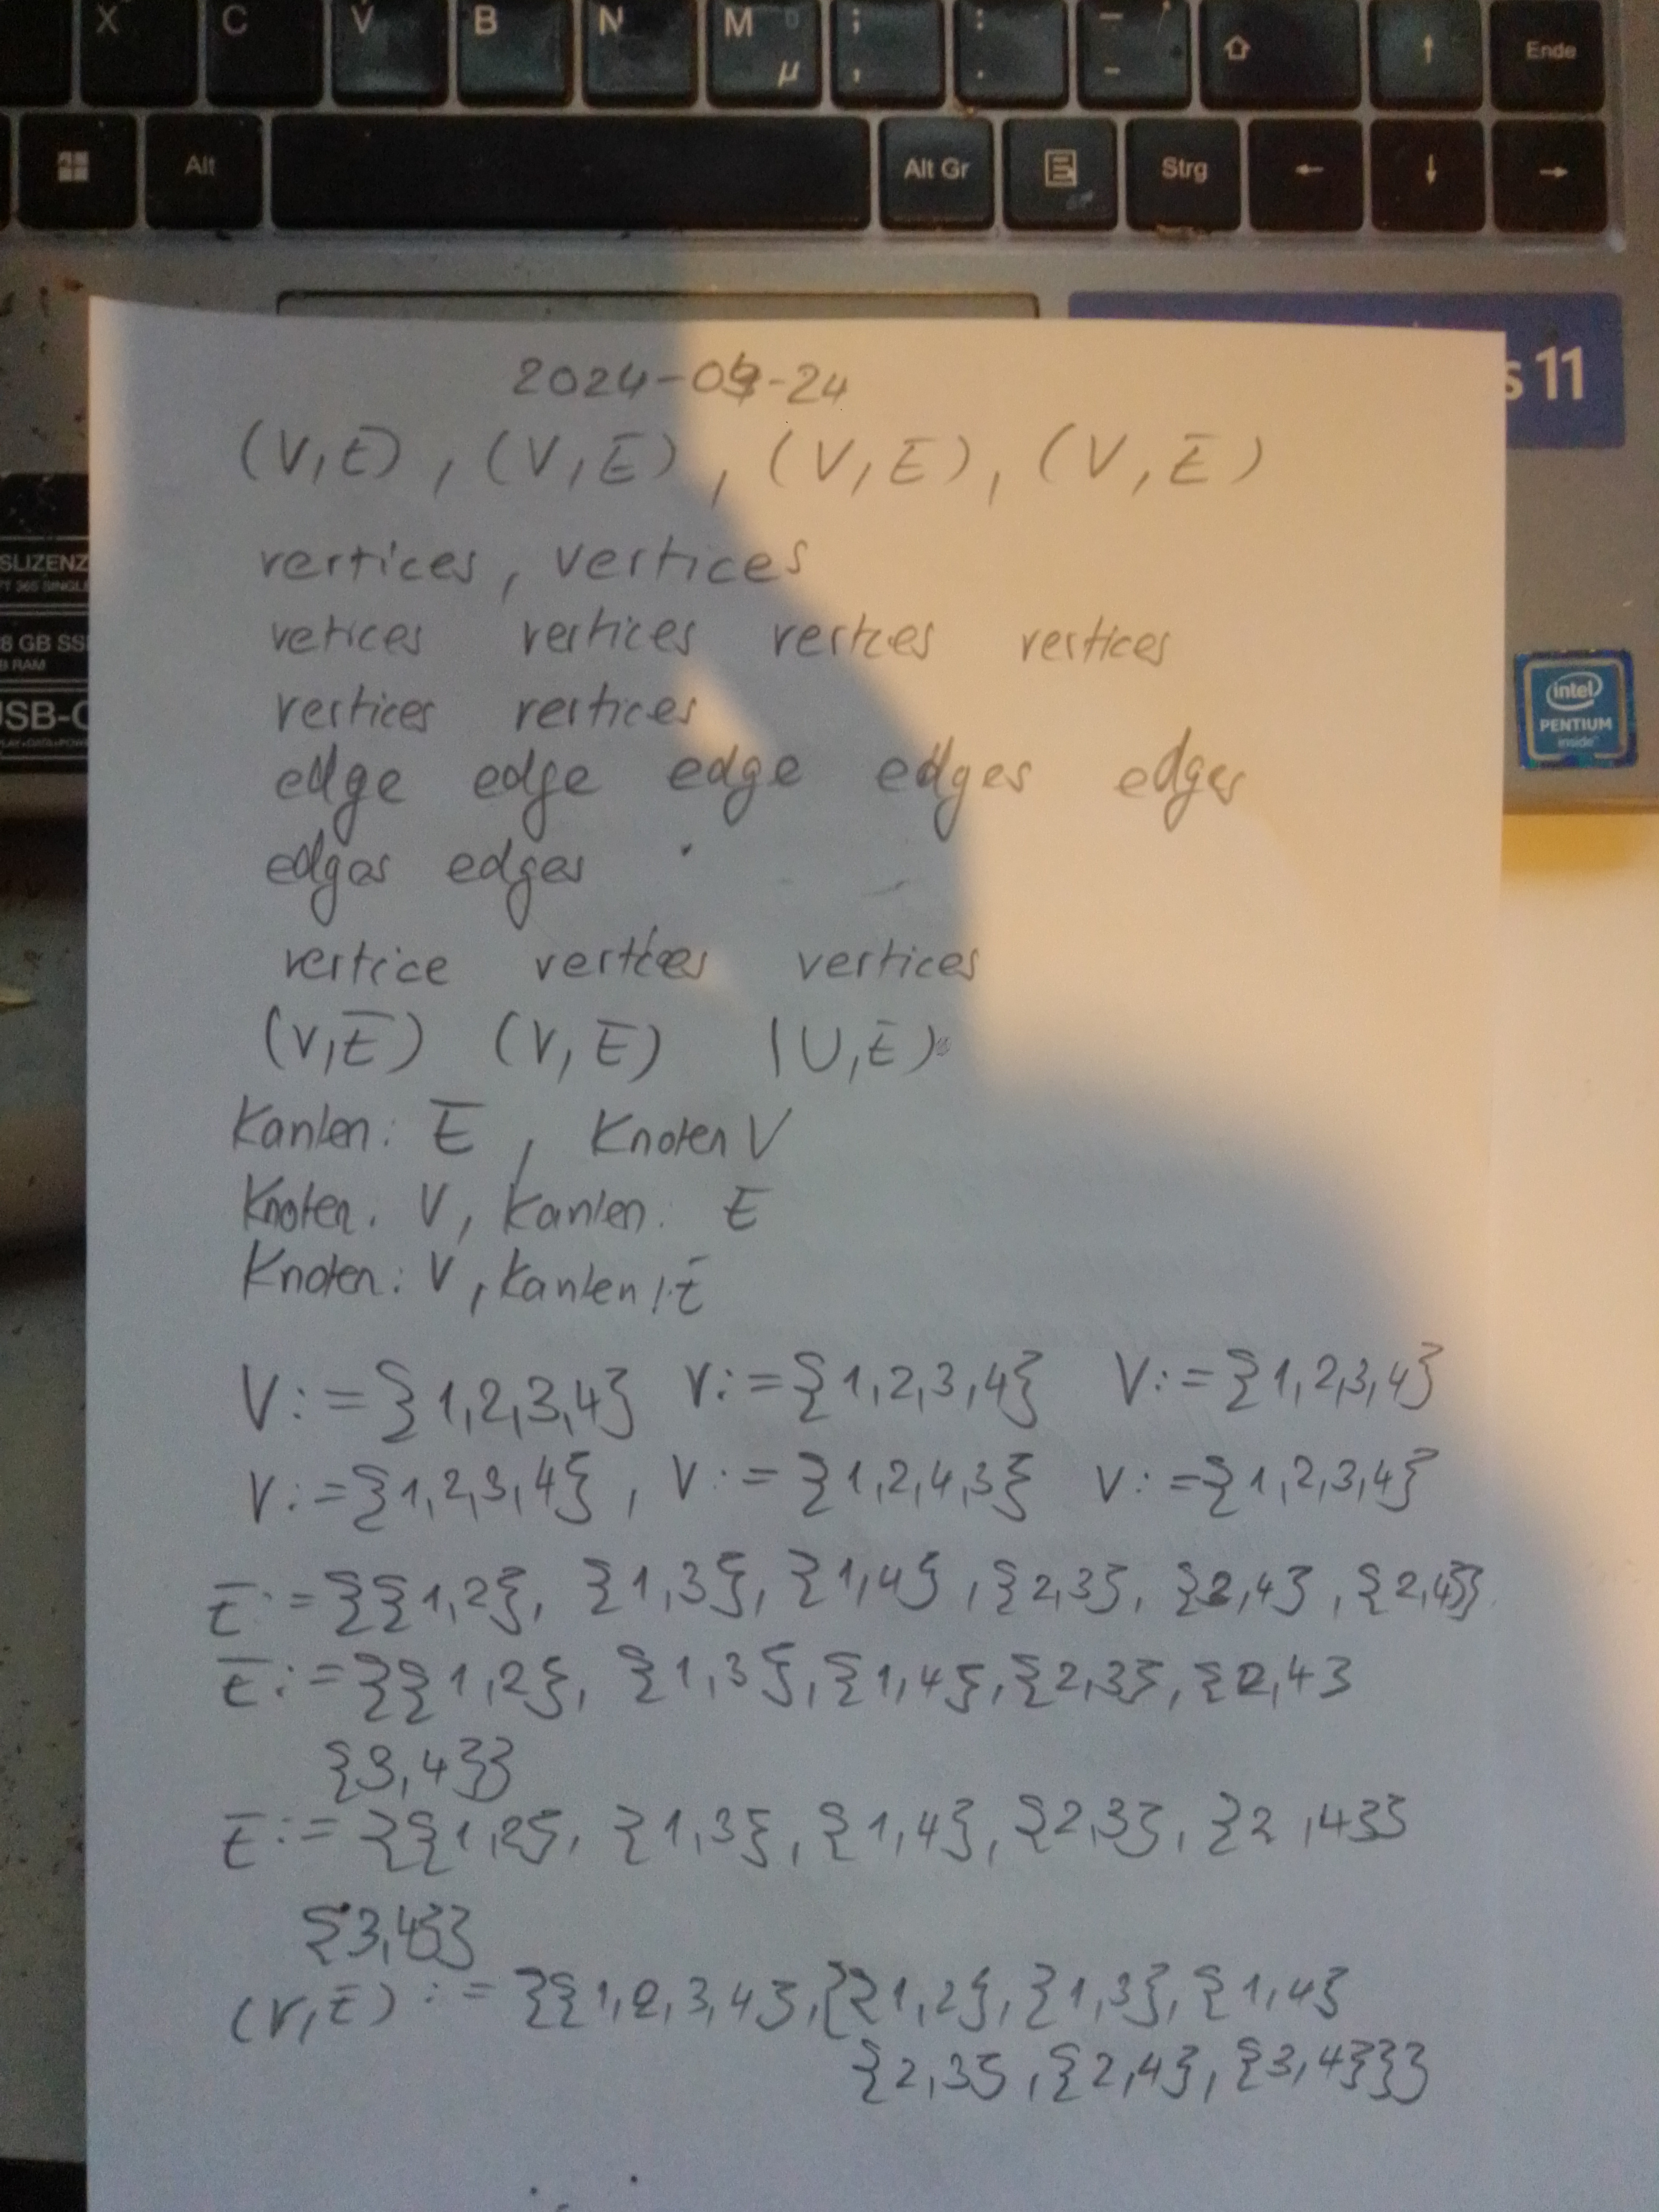 X C V B N M µ ; , : . _ - ⇧ ↑ Ende
Alt Alt Gr Strg ← ↓ →
s 11
SLIZENZ
8 GB SS
B RAM
USB-C
intel
PENTIUM
inside
(V,E) , (V,E) , (V,E) , (V,E)
vertices , vertices
vetices vertices vertces vertices
vertices vertices
edge edge edge edges edges
edges edges
vertice vertices vertices
(V,E) (V,E) (U,E)
Kanten: E , Knoten V
Knoten. V, Kanten. E
Knoten: V , Kanten: E
V:={1,2,3,4} V:={1,2,3,4} V:={1,2,3,4}
V:={1,2,3,4} , V:={1,2,4,3} V:={1,2,3,4}
E:={{1,2}, {1,3}, {1,4}, {2,3}, {2,4}, {2,4}}
E:={{1,2}, {1,3}, {1,4}, {2,3}, {2,4}
{3,4}}
E:={{1,2}, {1,3}, {1,4}, {2,3}, {2,4}}
{3,4}}
(V,E):={{1,2,3,4},{{1,2},{1,3},{1,4}
{2,3},{2,4},{3,4}}}